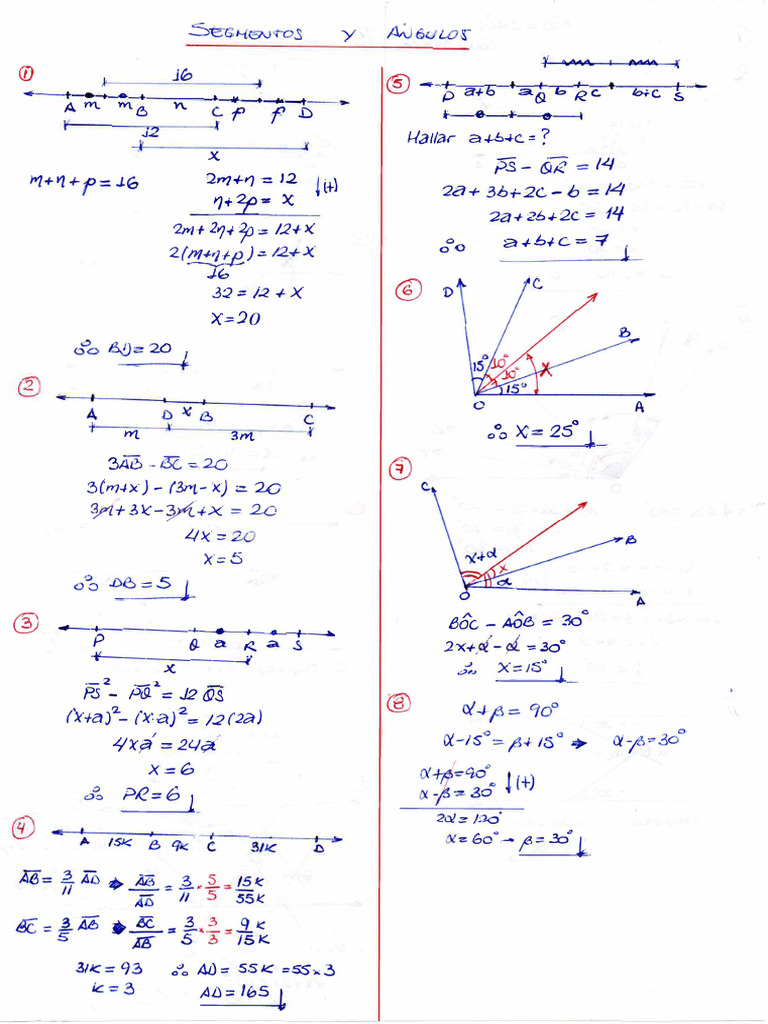 SEGMENTOS Y ANGULOS
①
16
A m m B n C p p D
12
x
m+n+p=16
2m+n=12
n+2p=x ↓(+)
2m+2n+2p=12+x
2(m+n+p)=12+x
16
32=12+x
x=20
∴ BD=20
②
A D x B C
m 3m
3AB-BC=20
3(m+x)-(3m-x)=20
3m+3x-3m+x=20
4x=20
x=5
∴ DB=5
③
P Q a R a S
x
PS²-PQ²=12QS
(x+a)²-(x-a)²=12(2a)
4xa=24a
x=6
∴ PR=6
④
A 15K B 9K C 31K D
AB=3/11 AD ⇒ AB/AD=3/11×5/5=15K/55K
BC=3/5 AB ⇒ BC/AB=3/5×3/3=9K/15K
31K=93 ∴ AD=55K=55×3
K=3 AD=165
⑤
P a+b a Q b R c b+c S
Hallar a+b+c=?
PS-QR=14
2a+3b+2c-b=14
2a+2b+2c=14
∴ a+b+c=7
⑥
D C
B
15° 10° 10° X
15°
O A
∴ X=25°
⑦
C
B
x+α x
α
O A
BÔC-AÔB=30°
2x+α-α=30°
∴ X=15°
⑧
α+β=90°
α-15°=β+15° ⇒ α-β=30°
α+β=90°
α-β=30° ↓(+)
2α=120°
α=60° → β=30°